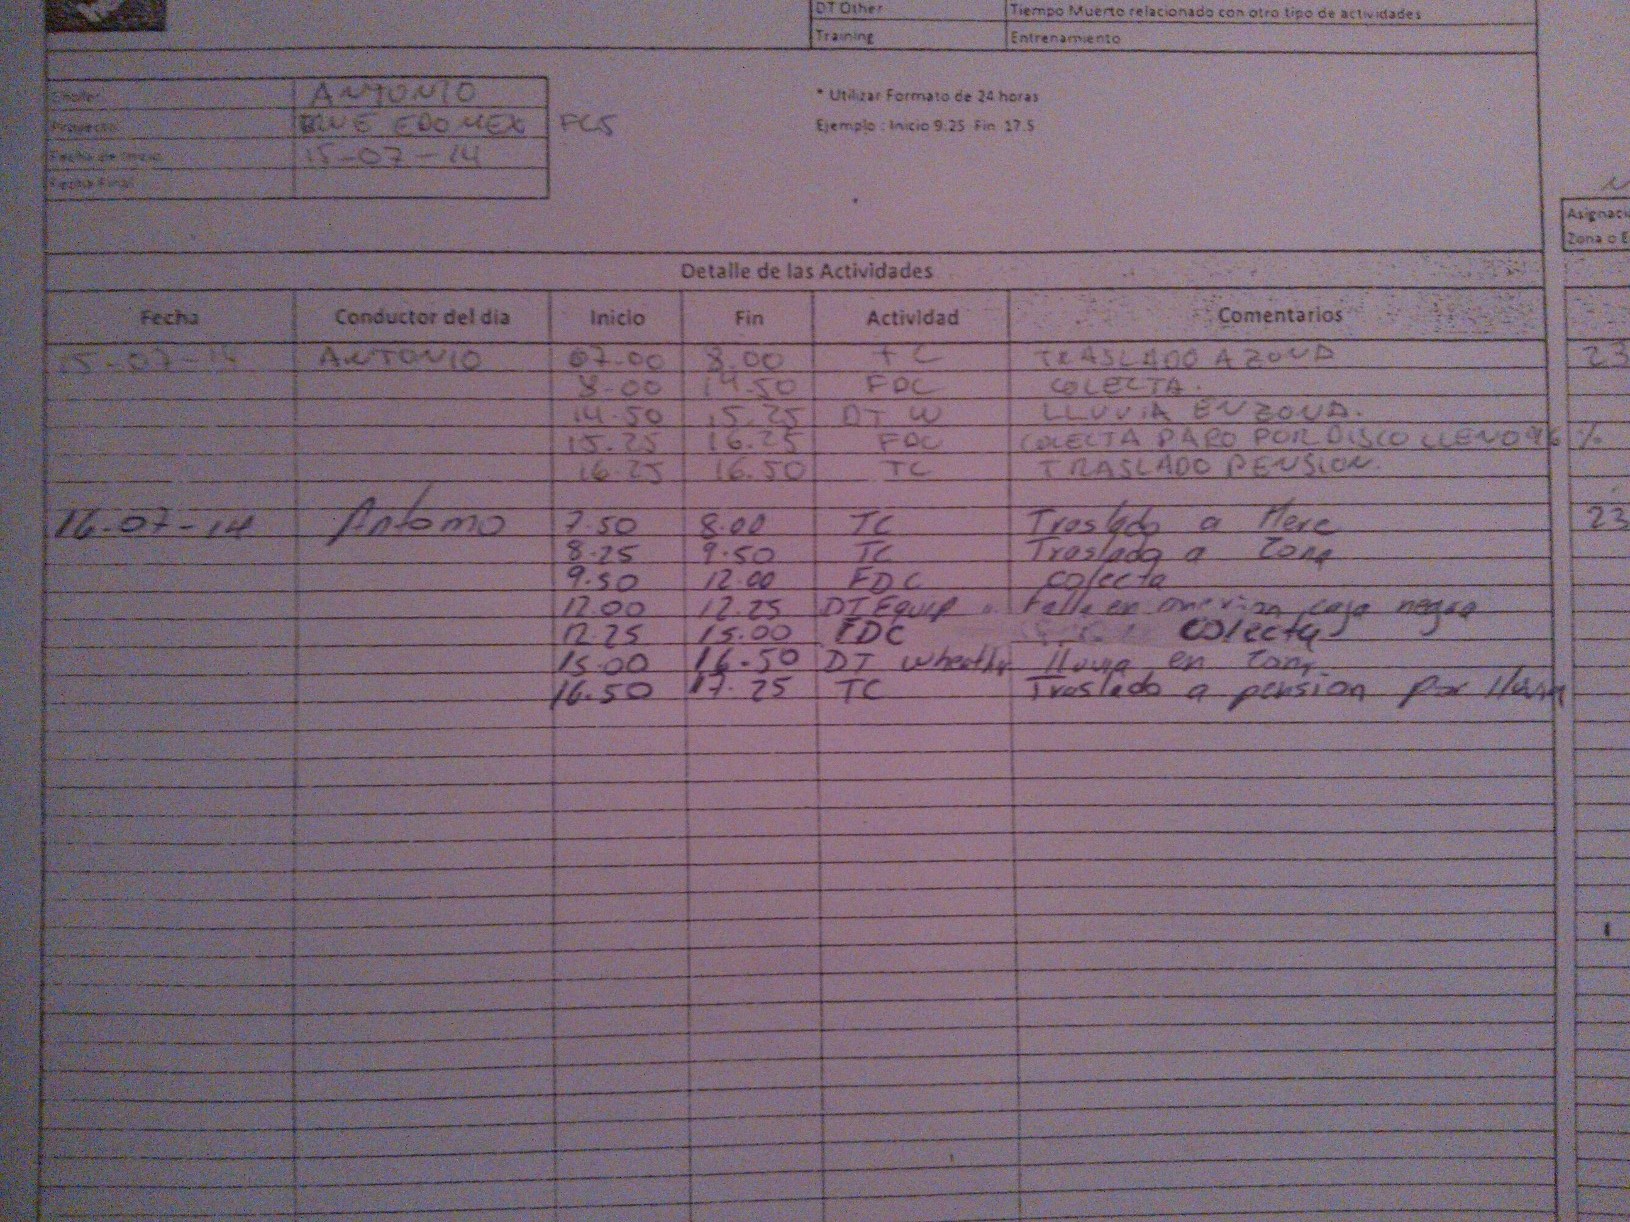 DT Other Tiempo Muerto relacionado con otro tipo de actividades
Training Entrenamiento
Chofer: ANTONIO
Proyecto: EDOMEX PC5
Fecha de Inicio 15-07-14
Fecha Final
* Utilizar Formato de 24 horas
Ejemplo : Inicio 9:25 Fin 17.5
Asignaci
Zona o E
Detalle de las Actividades
Fecha Conductor del dia Inicio Fin Actividad Comentarios
15-07-14 ANTONIO 07.00 8.00 TC TRASLADO A ZONA 23
8-00 14.50 FDC COLECTA.
14.50 15.25 DT W LLUVIA EN ZONA.
15.25 16.25 FDC COLECTA PARO POR DISCO LLENO 96 %
16.25 16.50 TC TRASLADO PENSION.
16-07-14 Antonio 7.50 8.00 TC Traslado a Here 23
8.25 9.50 TC Traslado a Zona
9.50 12.00 FDC colecta
12.00 12.25 DT Equip Falla en conexion caja negra
12.25 15.00 FDC colecta
15.00 16.50 DT wheather lluvia en Zona
16.50 17.25 TC Traslado a pension por lluvia